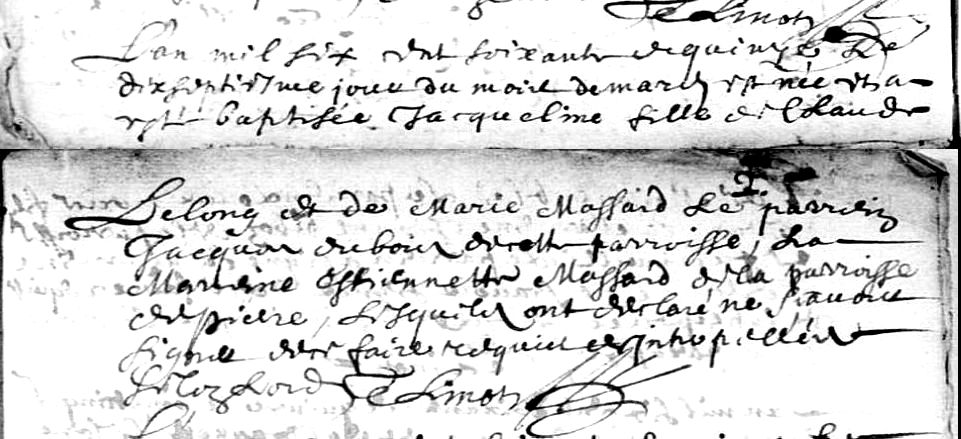 Te Limoty
L'an mil six cent soixante et quinze Le
dixseptiesme jour du mois de mars est née et a
esté baptisée Jacqueline fille de Claude
2.
Belong et de Marie Massard Le parrein
Jacques dubois de cette parroisse, La
Mareine Estiennette Massard de la parroisse
de pierre, lesquels ont déclaré ne scavoir
signer de ce faire requis et interpellés
selon Lord Te Limoty